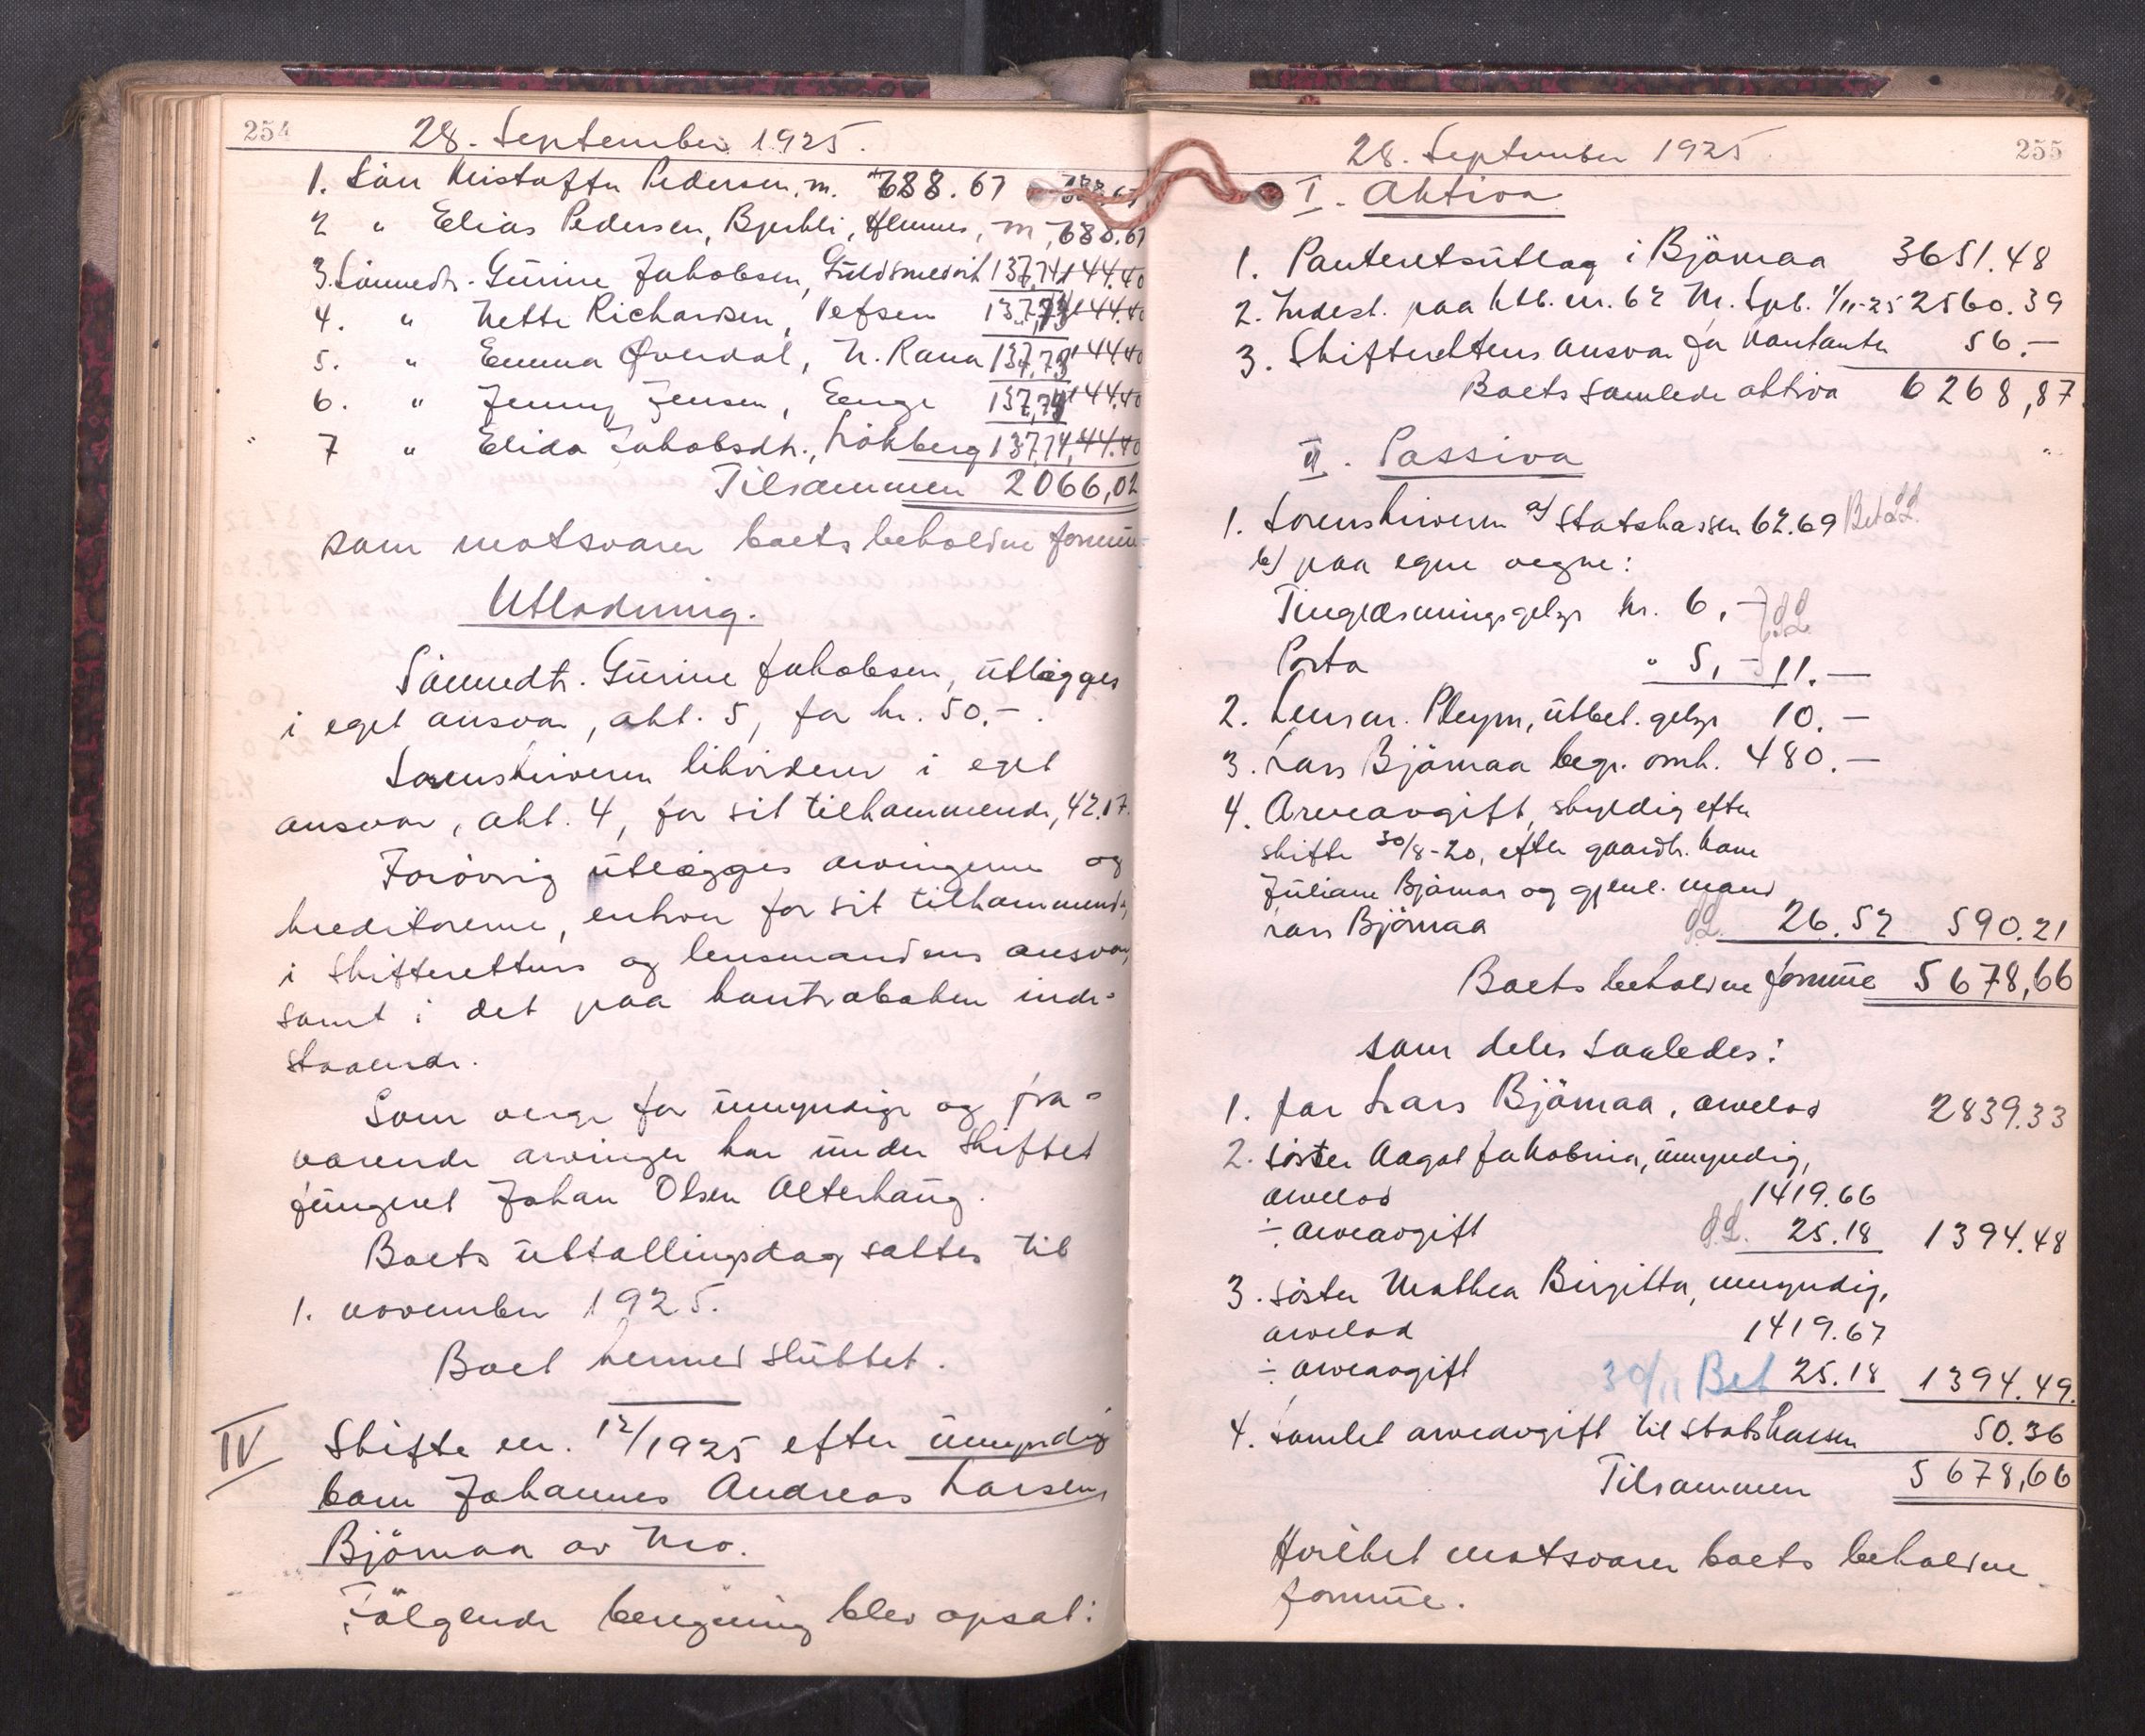 254
28. September 1925.
1. Sön Kristoffer Pedersen, m. 688.67
2 " Elias Pedersen, Bjerkli, Hemnes, m, 688.67
3. Sönnedtr. Gürine Jakobsen, Güldsmedvik 137,74 144.40
4. " Nette Richardsen, Vefsen 137,73 144.40
5. " Emma Överdal, N. Rana 137,73 144.40
6. " Jenny Jensen, Enge 137,74 144.40
7 " Elida Jakobsdtr., Lökberg 137,74, 144.40
Tilsammen 2066,02
som motsvarer boets beholdne formüe
Utlodning.
Sönnedtr. Gürine Jakobsen, ütlægges
i eget ansvar, akt. 5, for kr. 50.-.
Sorenskriveren likviderer i eget
ansvar, akt. 4, for sit tilkommende, 42.17.
Forövrig ütlægges arvingerne og
kreditorerne, enhver for sit tilkommende,
i skifterettens og lensmandens ansvar,
samt i det paa kontraboken inde-
staaende.
Som verge for ümyndige og fra-
værende arvinger har ünder skiftet
füngeret Johan Olsen Alterhaug.
Boets übtallingsdag sattes til
1. november 1925.
Boet hermed slüttet.
IV
Skifte nr. 12/1925 efter ümyndig
barn Johannes Andreas Larsen,
Björnaa av Mo.
Fölgende beregning blev opsat:
28. September 1925.
255
I. Aktiva
1. Panteretsütlæg i Björnaa 3651.48
2. Indest. paa ktb. nr. 62 M. Spb. 1/11-25 2560.39
3. Skifterettens ansvar for kontanter 56.-
Boets samlede aktiva 6268,87
II. Passiva
1. Sorenskriveren a) Statskassen 62.69 Bet
b) paa egne vegne:
Tinglæsningsgebyr kr. 6,-
Porto " 5,- 11.-
2. Lensm. Pleym, ütbet. gebyr 10.-
3. Lars Björnaa begr. omk. 480.-
4. Arveavgift, skyldig efter
skifte 30/8-20, efter gaardbr. kone
Jüliane Björnaa og gjenl. mand
Lars Björnaa 26.52 590.21
Boets beholdne formüe 5678,66
som deles saaledes:
1. far Lars Björnaa, arvelod 2839.33
2. söster Aagot Jakobina, ümyndig,
arvelod 1419.66
÷ arveavgift 25.18 1394.48
3. söster Mathea Birgitta, ümyndig,
arvelod 1419.67
÷ arveavgift 30/11 Bet 25.18 1394.49.
4. samlet arveavgift til statskassen 50.36
Tilsammen 5678,66
Hvilket motsvarer boets beholdne
formüe.